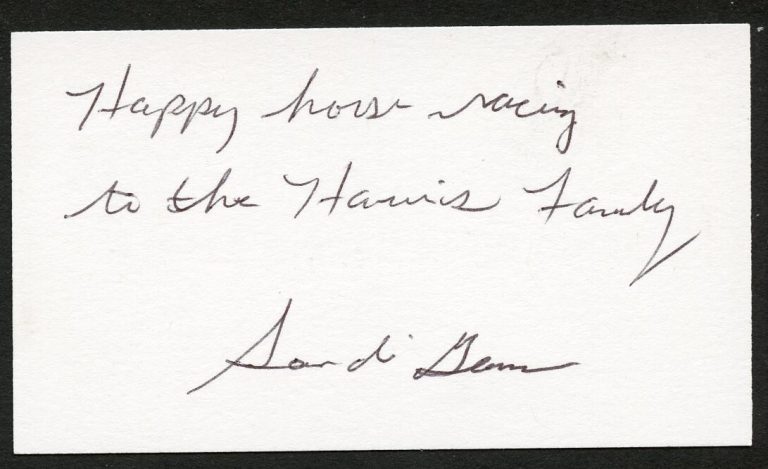 Happy horse racing
to the Harris Family
Sandi